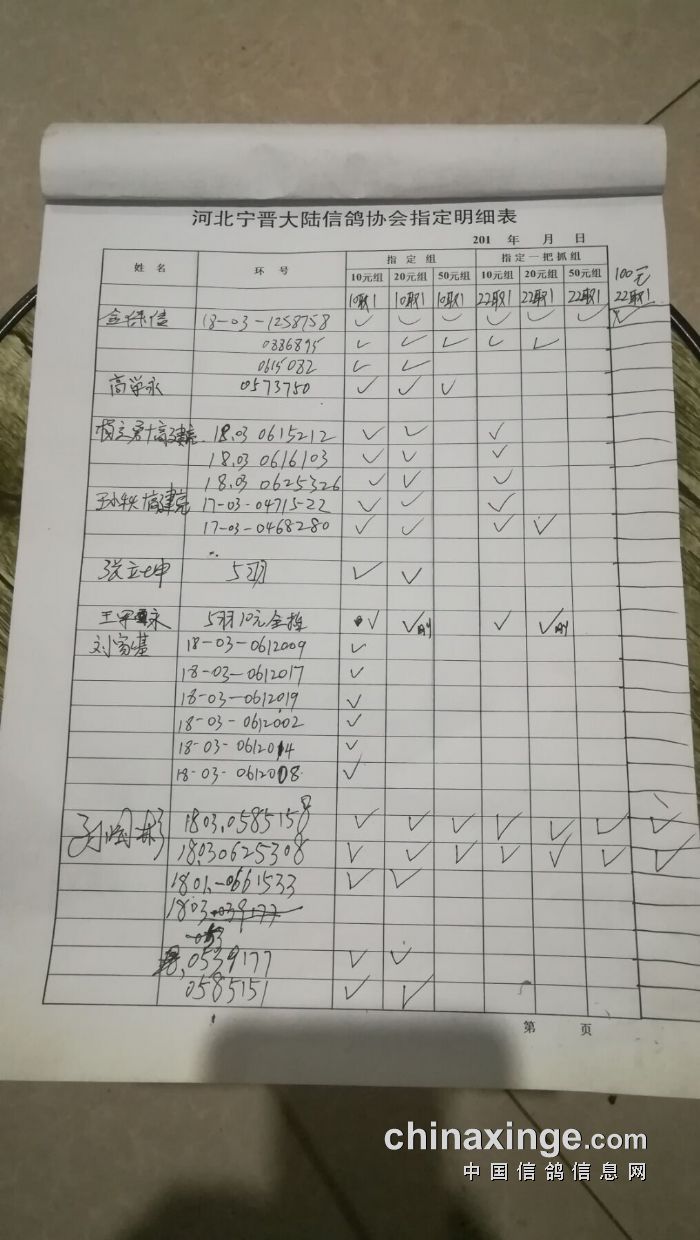 河北宁晋大陆信鸽协会指定明细表
201 年 月 日
姓名 环号 指定组 指定一把抓组
10元组 20元组 50元组 10元组 20元组 50元组 100元
10取1 10取1 10取1 22取1 22取1 22取1 22取1
18-03-1258758 ✓ ✓ ✓ ✓ ✓ ✓ ✓
0886895 ✓ ✓ ✓ ✓ ✓
0615082 ✓ ✓
高学永 0573750 ✓ ✓ ✓
18.03 0615212 ✓ ✓ ✓
18.03 0616103 ✓ ✓ ✓
18.03 0625326 ✓ ✓ ✓
17-03-04715-22 ✓ ✓ ✓
17-03-0468280 ✓ ✓ ✓ ✓
张立坤 5羽 ✓ ✓
5羽10元全指 ✓ ✓ ✓ ✓
18-03-0612009 ✓
18-03-0612017 ✓
18-03-0612019 ✓
18-03-0612002 ✓
18-03-0612014 ✓
18-03-0612018 ✓
1803.0585158 ✓ ✓ ✓ ✓ ✓ ✓ ✓
18030625308 ✓ ✓ ✓ ✓ ✓ ✓ ✓
1801-0661533 ✓ ✓
1803
0539177 ✓ ✓
0585151 ✓ ✓
第 页
chinaxinge.com
中国信鸽信息网